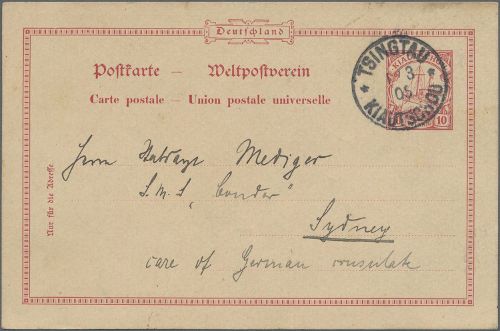 Deutschland
Postkarte — Weltpostverein
Carte postale — Union postale universelle
TSINGTAU
3
05
KIAUTSCHOU
10
Nur für die Adresse
Herrn Stabsarzt Mediger
S.M.S. "Condor"
Sydney
care of German consulate